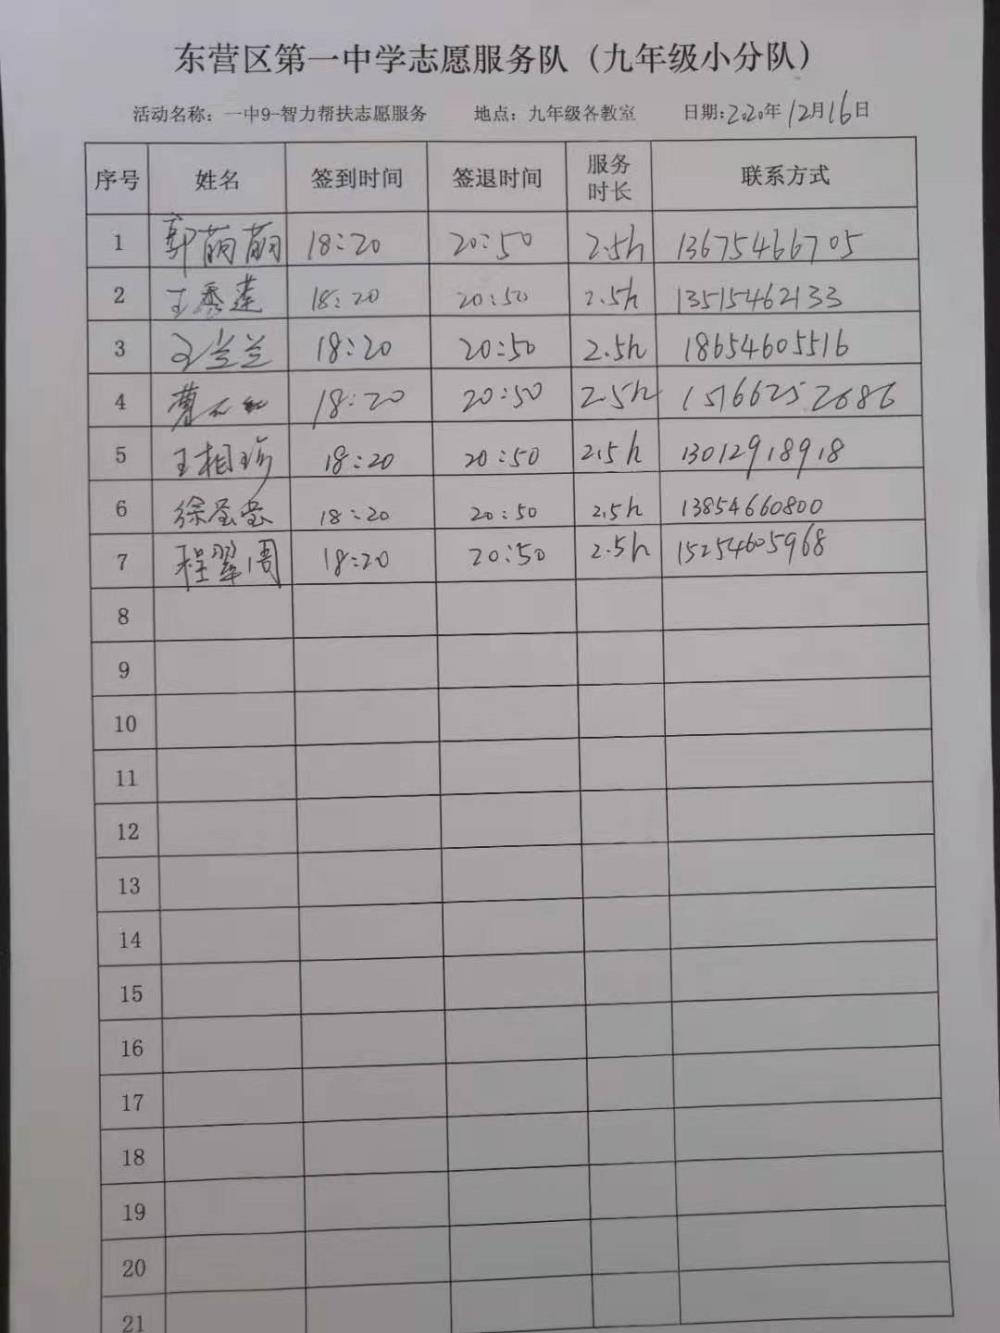 东营区第一中学志愿服务队（九年级小分队）
活动名称：一中9-智力帮扶志愿服务 地点：九年级各教室 日期:2020年12月16日
序号 姓名 签到时间 签退时间 服务时长 联系方式
1 郭萌萌 18:20 20:50 2.5h 13675466705
2 王秀莲 18:20 20:50 2.5h 13515462133
3 王兰兰 18:20 20:50 2.5h 18654605516
4 18:20 20:50 2.5h 15166252686
5 王相珍 18:20 20:50 2.5h 13012918918
6 徐 18:20 20:50 2.5h 13854660800
7 程翠周 18:20 20:50 2.5h 15254605968
8
9
10
11
12
13
14
15
16
17
18
19
20
21